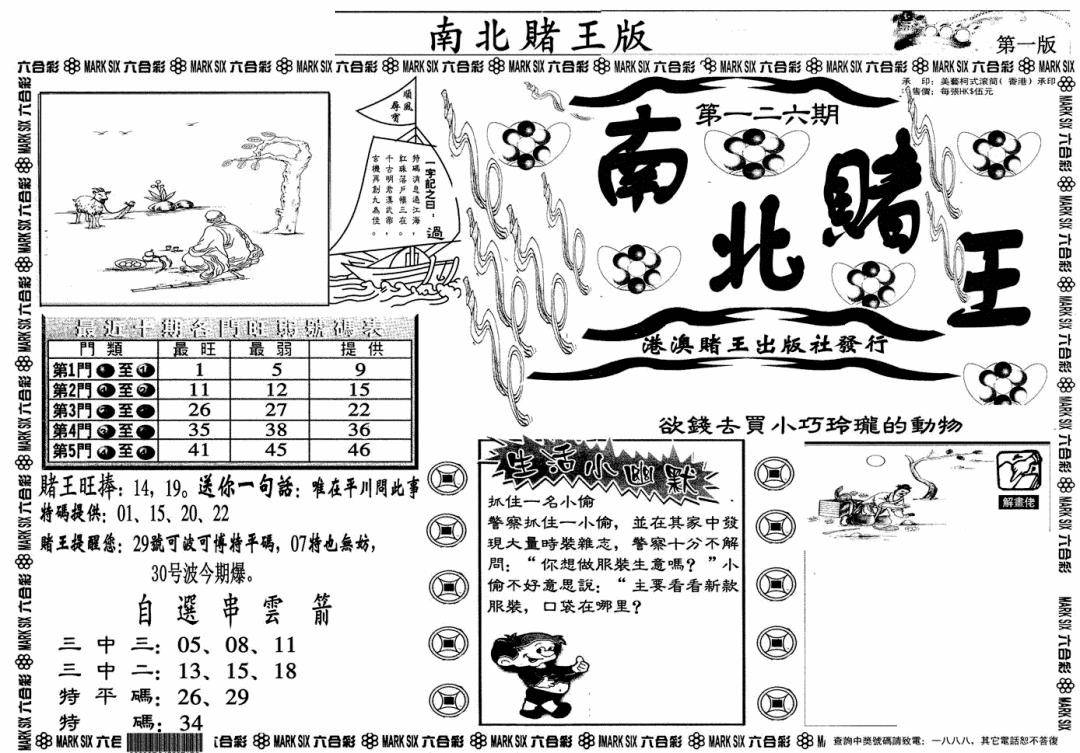 南北賭王版
第一版
六合彩 MARK SIX 六合彩 MARK SIX 六合彩 MARK SIX 六合彩 MARK SIX 六合彩 MARK SIX 六合彩 MARK SIX 六合彩 MARK SIX 六合彩 MARK SIX 六合彩 MARK SIX 六合彩 MARK SIX
承 印：美藝柯式滾筒（香港）承印
售價：每張HK$伍元
順風
尋寶
一字記之曰：過
特碼消息過江海，
紅珠落戶樓三在。
千古明君漢武帝，
玄機再創九為佳。
第一二六期
南北賭王
港澳賭王出版社發行
最近十期各門旺弱號碼表
門 類 最 旺 最 弱 提 供
第1門 至 1 5 9
第2門 至 11 12 15
第3門 至 26 27 22
第4門 至 35 38 36
第5門 至 41 45 46
賭王旺捧：14，19。送你一句話：唯在平川問此事
特碼提供：01、15、20、22
賭王提醒您：29號可波可博特平碼，07特也無妨，
30号波今期爆。
自選串雲箭
三中三：05、08、11
三中二：13、15、18
特平碼：26、29
特 碼：34
欲錢去買小巧玲瓏的動物
生活小幽默
抓住一名小偷
警察抓住一小偷，並在其家中發
現大量時裝雜志，警察十分不解
問：“你想做服裝生意嗎？”小
偷不好意思說：“主要看看新款
服裝，口袋在哪里？
解畫佬
查詢中獎號碼請致電：一八八八，其它電話恕不答復